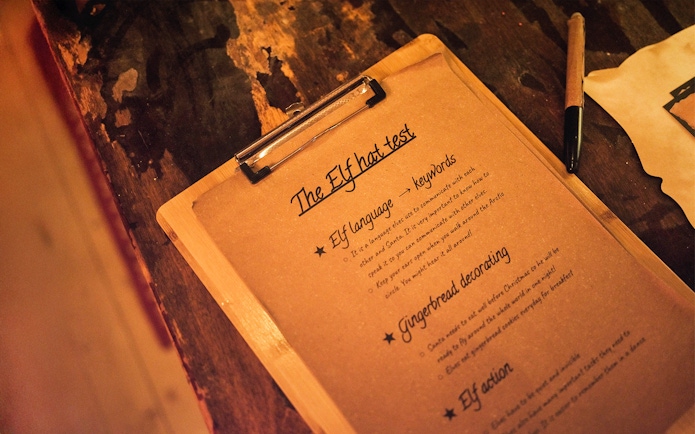 The Elf hat test
★ Elf language → keywords
○ It is a language elves use to communicate with each
other and Santa. It is very important to know how to
crack it so you can communicate with other elves.
○ Keep your ears open when you walk around the Arctic
circle. You might hear it all around!
★ Gingerbread decorating
○ Santa needs to eat well before Christmas so he will be
ready to fly around the whole world in one night!
○ Elves eat gingerbread cookies everyday for breakfast
★ Elf action
Elves have to be quiet and invisible
Elves also have many important tasks they need to
It is easier to remember them in a dance